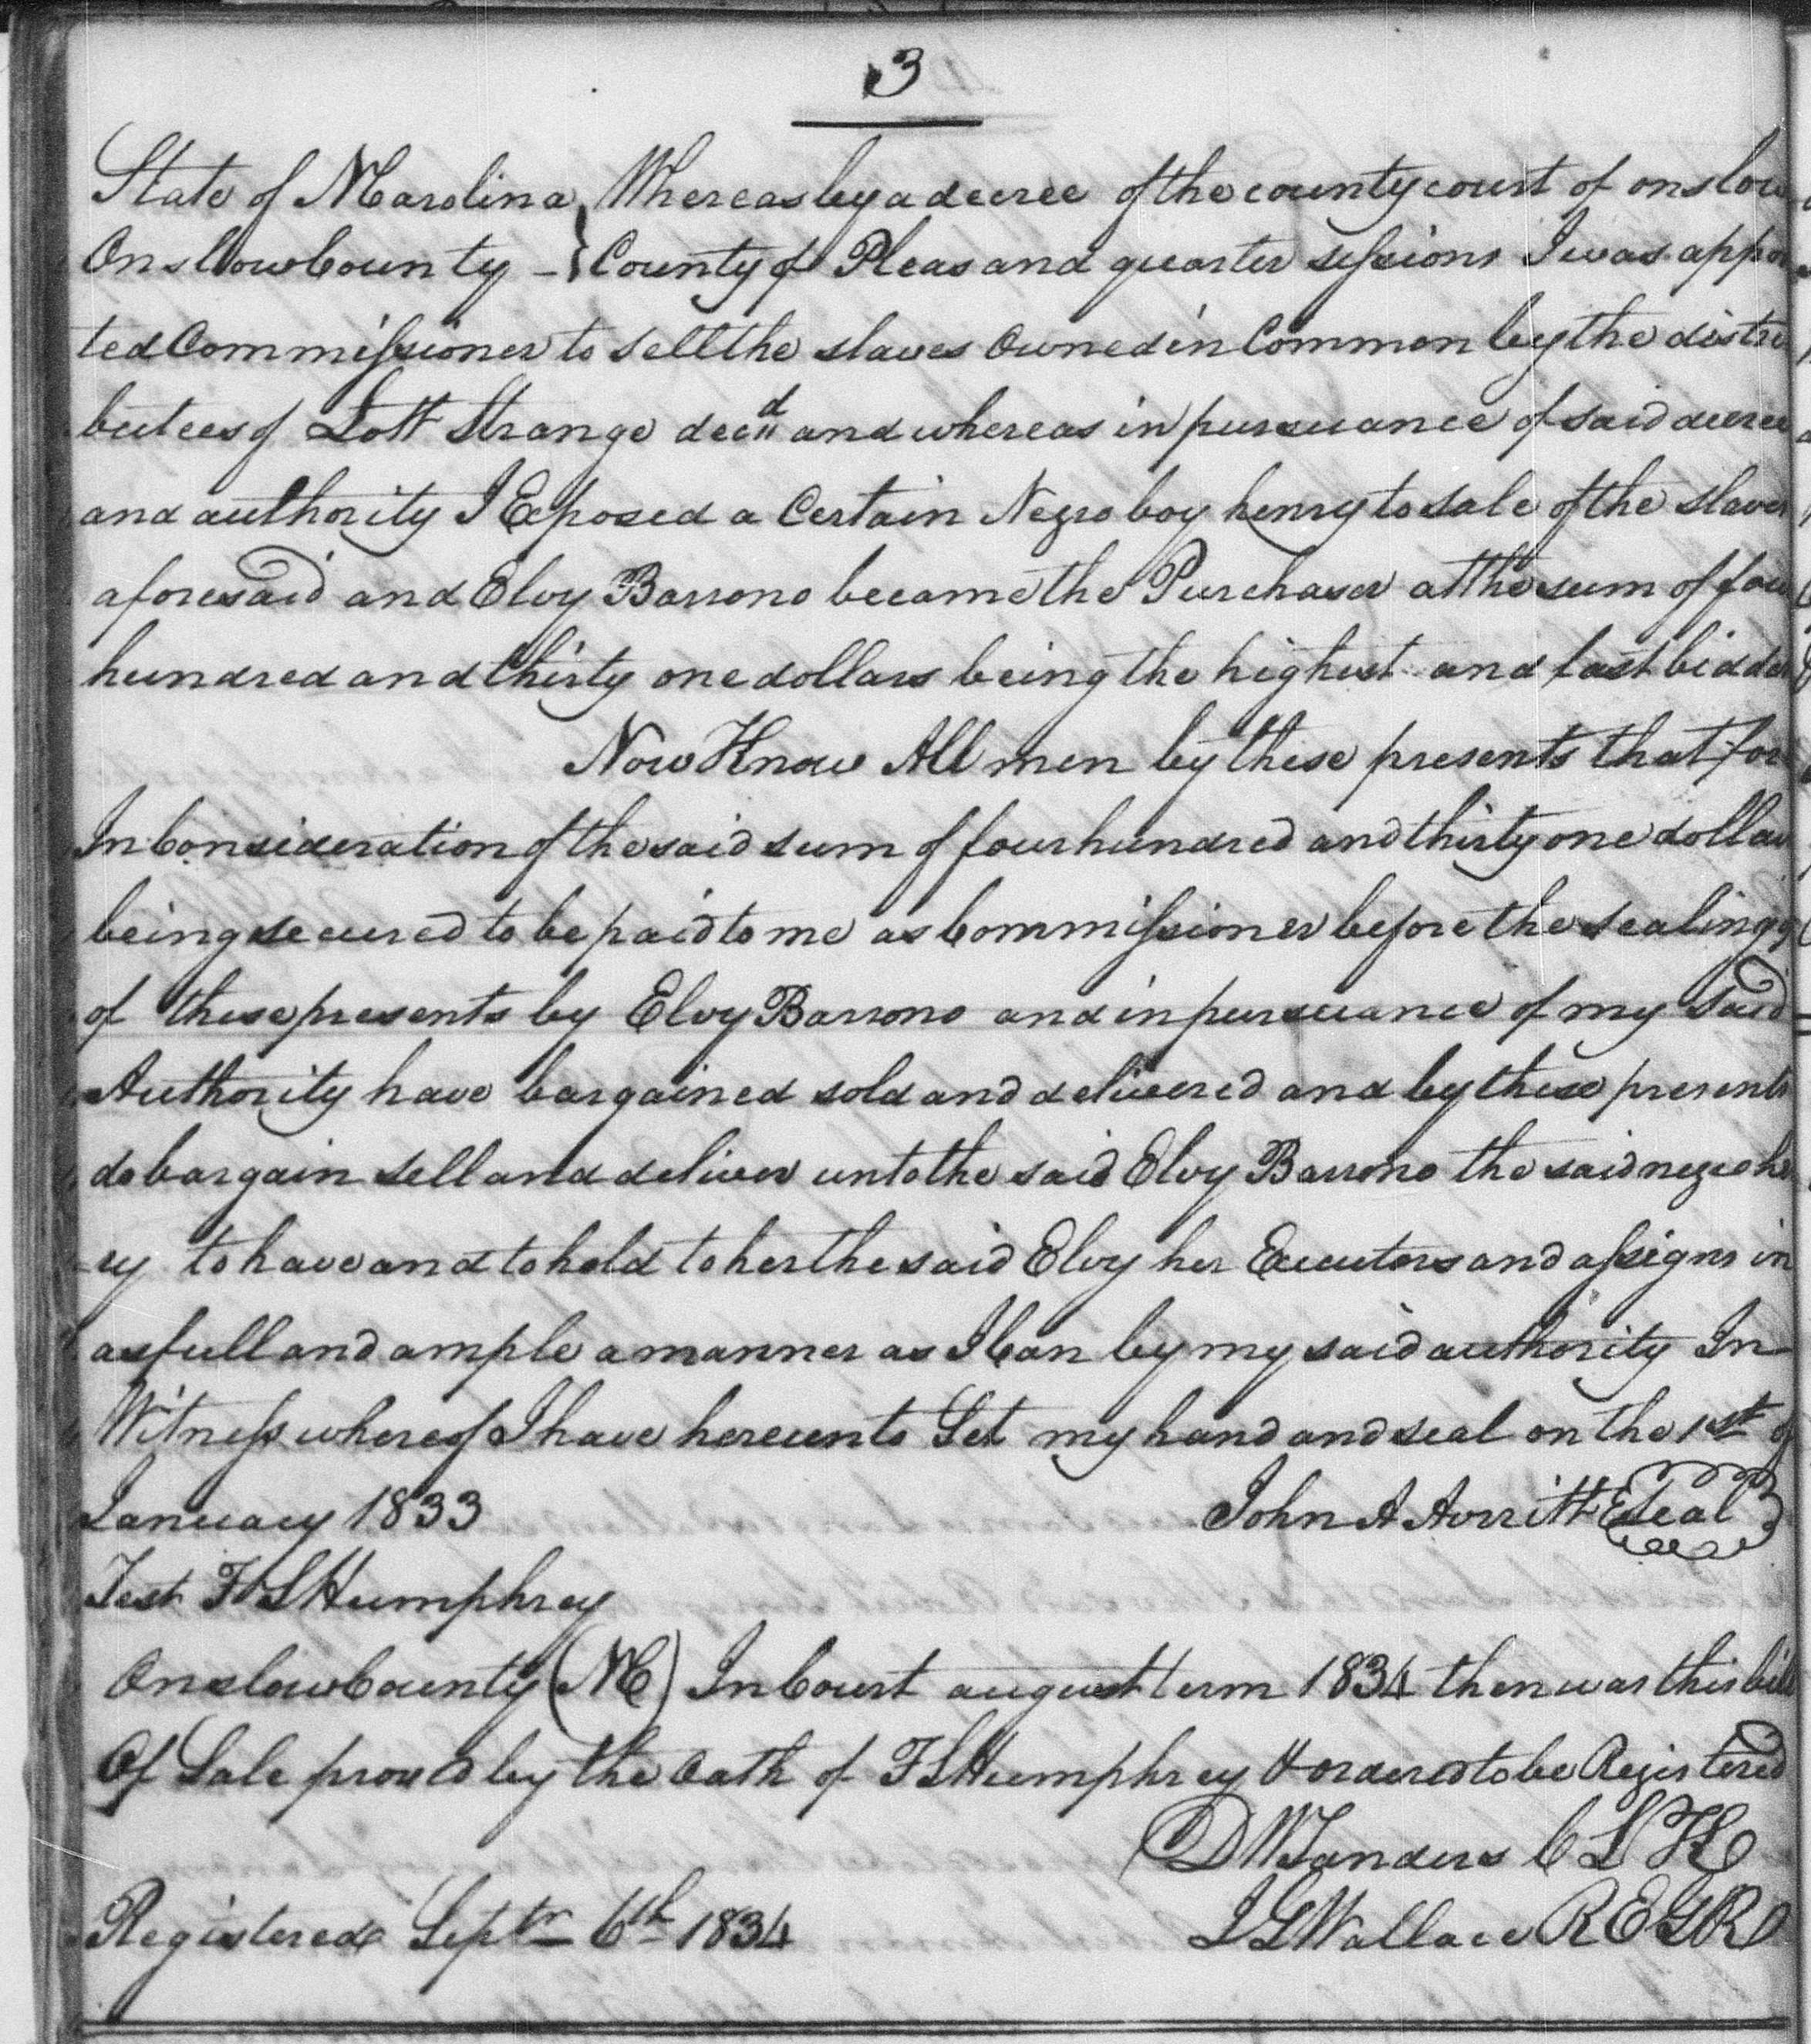 3
State of NCarolina } Whereas by a decree of the county court of onslow
Onslow County - } County of Pleas and quarter sessions I was appoi
ted Commissioner to sell the slaves Owned in Common by the distri
butees of Lott Strange decd and whereas in pursuance of said decree
and authority I Exposed a Certain Negro boy henry to sale of the slaves
aforesaid and Elvy Barrono became the Purchaser at the sum of four
hundred and thirty one dollars being the highest and last bidder
Now Know All men by these presents that for
In Consideration of the said sum of four hundred and thirty one dollars
being secured to be paid to me as Commissioner before the sealing
of these presents by Elvy Barrono and in pursuance of my said
Authority have bargained sold and delivered and by these presents
do bargain sell and deliver unto the said Elvy Barrono the said negro hen
-ry to have and to hold to her the said Elvy her Executors and assigns in
as full and ample a manner as I Can by my said authority In
Witness whereof I have hereunto Set my hand and seal on the 1st of
January 1833 John A Avritt {Seal}
Test F S Humphrey
Onslow County (NC) In Court august term 1834 then was this bill
Of Sale proved by the Oath of F S Humphrey & ordered to be Registered
D W Sanders C L K
Registered Septr 6th 1834 Wallace R E G R